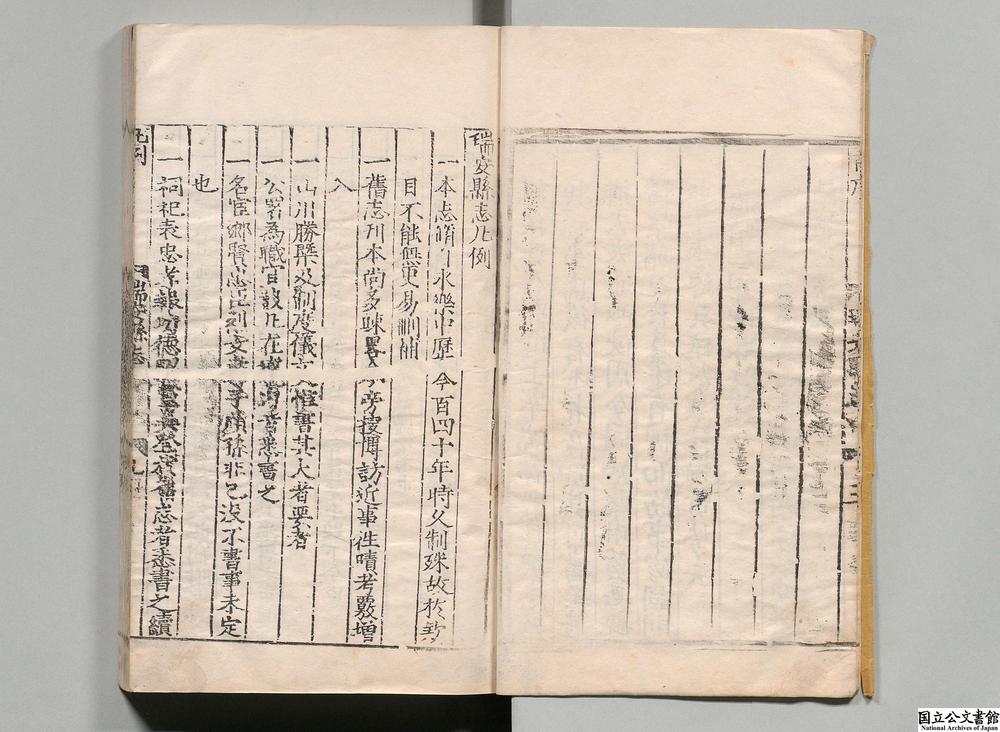 瑞安縣志凡例
一本志脩 永樂中歷今百四十年時久制殊故於
目不能無更易刪補
一舊志刊本尚多踈畧今 旁搜博訪近事往蹟考覈增
入
一山川勝槩及制度儀文惟書其大者要者
一公署為職官設凡在 者悉書之
一名宦鄉賢忠臣 子順孫非已沒不書事未定
也
一祠祀表忠孝報功德 志者悉書之續
凡例
瑞安縣志
国立公文書館
National Archives of Japan